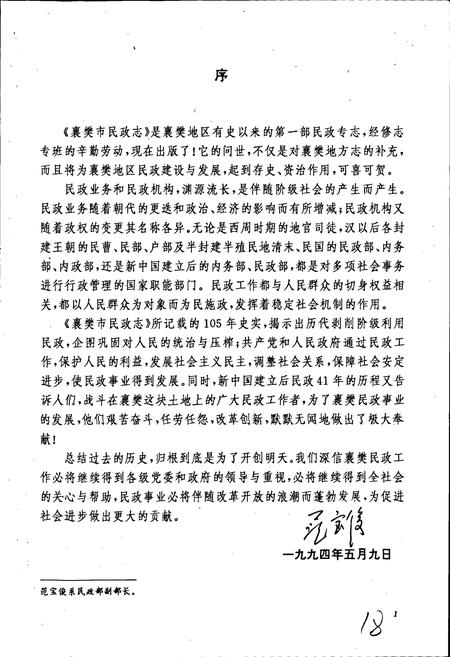 序
《襄樊市民政志》是襄樊地区有史以来的第一部民政专志，经修志
专班的辛勤劳动，现在出版了！它的问世，不仅是对襄樊地方志的补充，
而且将为襄樊地区民政建设与发展，起到存史、资治作用，可喜可贺。
民政业务和民政机构，渊源流长，是伴随阶级社会的产生而产生。
民政业务随着朝代的更迭和政治、经济的影响而有所增减；民政机构又
随着政权的变更其名称各异。无论是西周时期的地官司徒，汉以后各封
建王朝的民曹、民部、户部及半封建半殖民地清末、民国的民政部、内务
部、内政部，还是新中国建立后的内务部、民政部，都是对多项社会事务
进行行政管理的国家职能部门。民政工作都与人民群众的切身权益相
关，都以人民群众为对象而为民施政，发挥着稳定社会机制的作用。
《襄樊市民政志》所记载的105年史实，揭示出历代剥削阶级利用
民政，企图巩固对人民的统治与压榨；共产党和人民政府通过民政工
作，保护人民的利益，发展社会主义民主，调整社会关系，保障社会安定
进步，使民政事业得到发展。同时，新中国建立后民政41年的历程又告
诉人们，战斗在襄樊这块土地上的广大民政工作者，为了襄樊民政事业
的发展，他们艰苦奋斗，任劳任怨，改革创新，默默无闻地做出了极大奉
献！
总结过去的历史，归根到底是为了开创明天。我们深信襄樊民政工
作必将继续得到各级党委和政府的领导与重视，必将继续得到全社会
的关心与帮助，民政事业必将伴随改革开放的浪潮而蓬勃发展，为促进
社会进步做出更大的贡献。
范宝俊
一九九四年五月九日
范宝俊系民政部副部长。
18
1